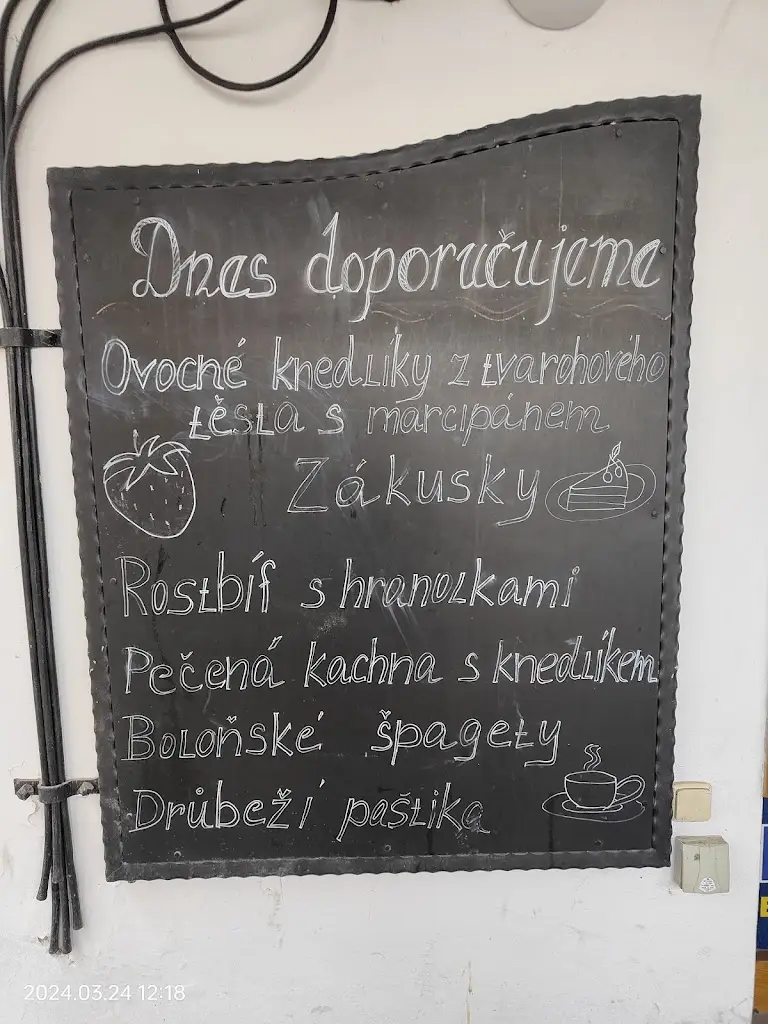 Dnes doporučujeme
Ovocné knedlíky z tvarohového
těsta s marcipánem
Zákusky
Rostbíf s hranolkami
Pečená kachna s knedlíkem
Boloňské špagety
Drůbeží paštika
2024.03.24 12:18